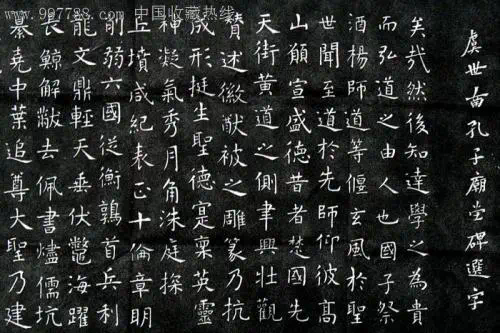 www.997788.com 中国收藏热线
虞世南孔子廟堂碑選字
矣哉然後知達學之為貴
而弘道之由人也國子祭
酒楊師道等偃玄風於聖
世聞至道於先師仰彼高
山願宣盛德昔者楚國先
天街黃道之側聿興壯觀
贊述徽猷被之雕篆乃抗
成形挺生聖德寔稟英靈
神凝氣秀月角洙庭探
丘墳咸紀表正十倫章明
削弱六國從衡鶉首兵利
龍文鼎輕天垂伏鱉海躍
長鯨解黻去佩書燼儒坑
纂堯中葉追尊大聖乃建